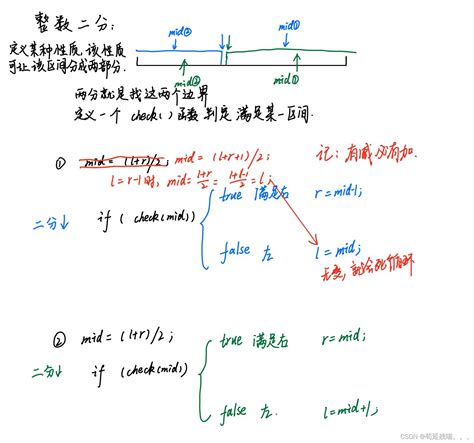 整数二分:
mid② mid①
定义某种性质,该性质
可让该区间分成两部分.
mid② mid①
两分就是找这两个边界
定义一个 check() 函数 判定 满足某一区间.
① mid = (l+r)/2; mid = (l+r+1)/2; 记: 有减必有加.
l=r-1时, mid= l+r/2 = l+l+1/2 = l;
true 满足右 r=mid-1;
二分↓ if ( check(mid))
false 左 l=mid;
无变, 就会死循环
② mid = (l+r)/2;
true 满足右 r=mid;
二分↓ if (check(mid))
false 左. l=mid+1;